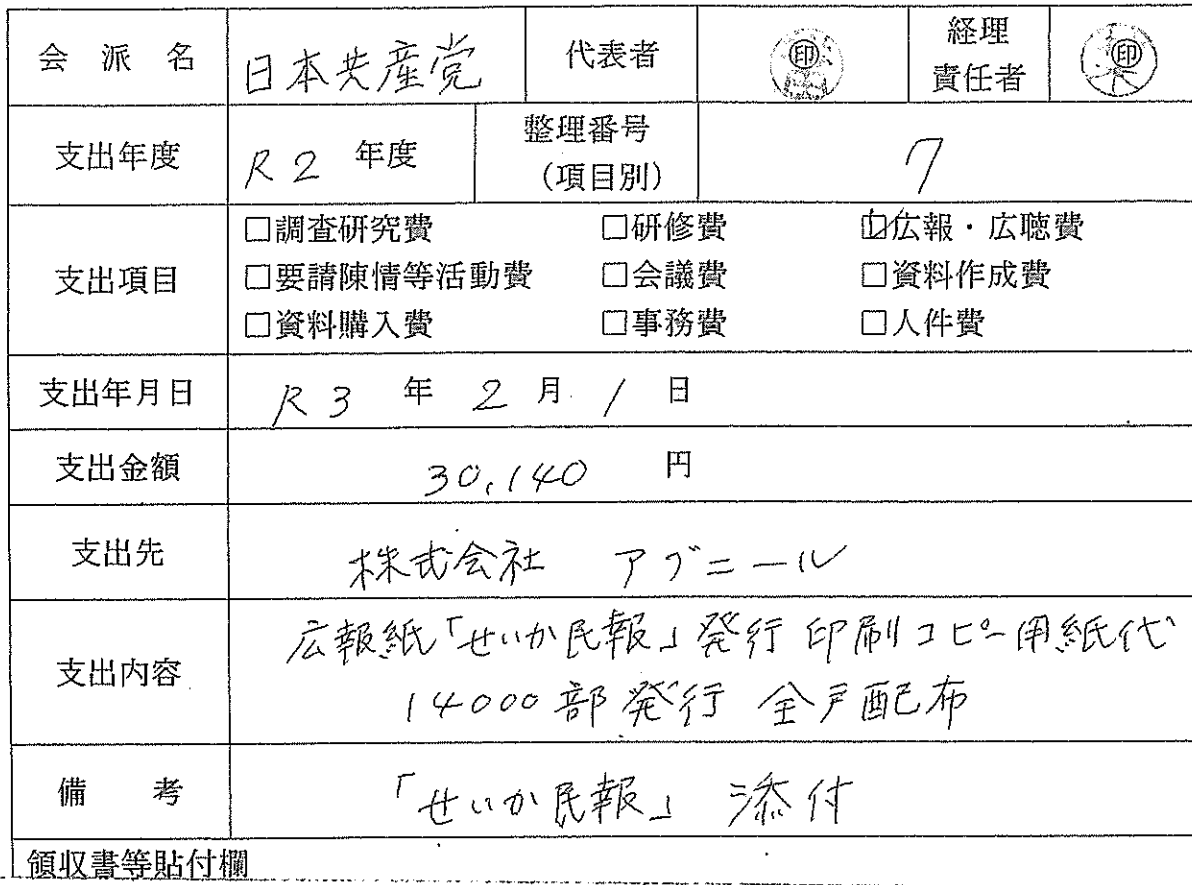 会派名 日本共産党 代表者 印 経理責任者 印
支出年度 R2年度 整理番号(項目別) 7
支出項目 □調査研究費 □研修費 ☑広報・広聴費
□要請陳情等活動費 □会議費 □資料作成費
□資料購入費 □事務費 □人件費
支出年月日 R3年2月1日
支出金額 30,140円
支出先 株式会社 アブニール
支出内容 広報紙「せいか民報」発行 印刷コピー用紙代
14000部発行 全戸配布
備考 「せいか民報」添付
領収書等貼付欄